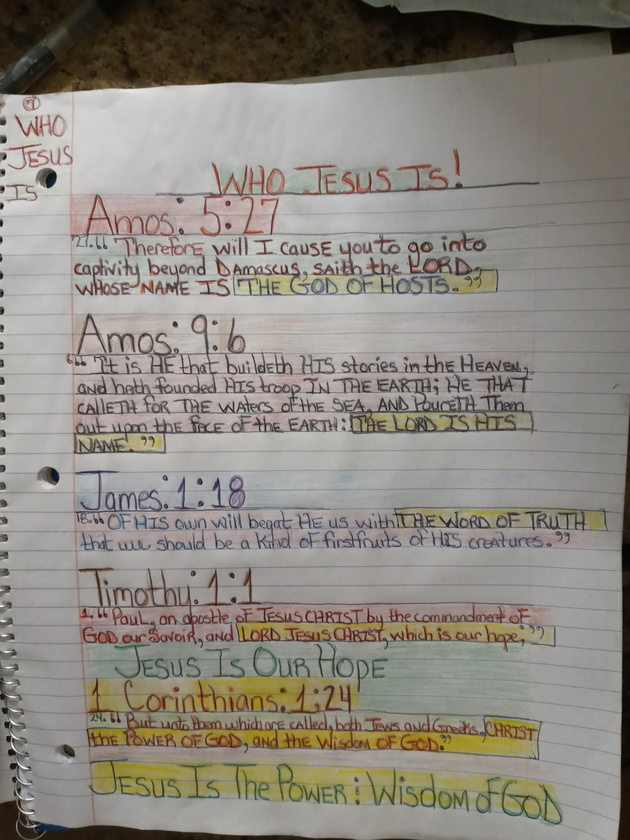 9
WHO
JESUS
IS
WHO JESUS IS!
Amos: 5:27
27. “ Therefore will I cause you to go into
captivity beyond Damascus, saith the LORD,
WHOSE NAME IS THE GOD OF HOSTS. ”
Amos: 9:6
6 “ It is HE that buildeth HIS stories in the HEAVEN,
and hath founded HIS troop IN THE EARTH; HE THAT
CALLETH FOR THE WATERS of the SEA, AND POURETH Them
out upon the FACE OF the EARTH: THE LORD IS HIS
NAME. ”
James: 1:18
18. “ OF HIS own will begat HE us with THE WORD OF TRUTH
that we should be a kind of firstfruits of HIS creatures. ”
Timothy: 1:1
1. “ PAUL, an apostle of JESUS CHRIST by the commandment of
GOD our Savoir, and LORD JESUS CHRIST, which is our hope; ”
JESUS IS OUR HOPE
1 Corinthians: 1;24
24. “ But unto them which are called, both Jews and Greeks, CHRIST
the POWER OF GOD, and the Wisdom OF GOD. ”
JESUS IS THE POWER : WISDOM of GOD